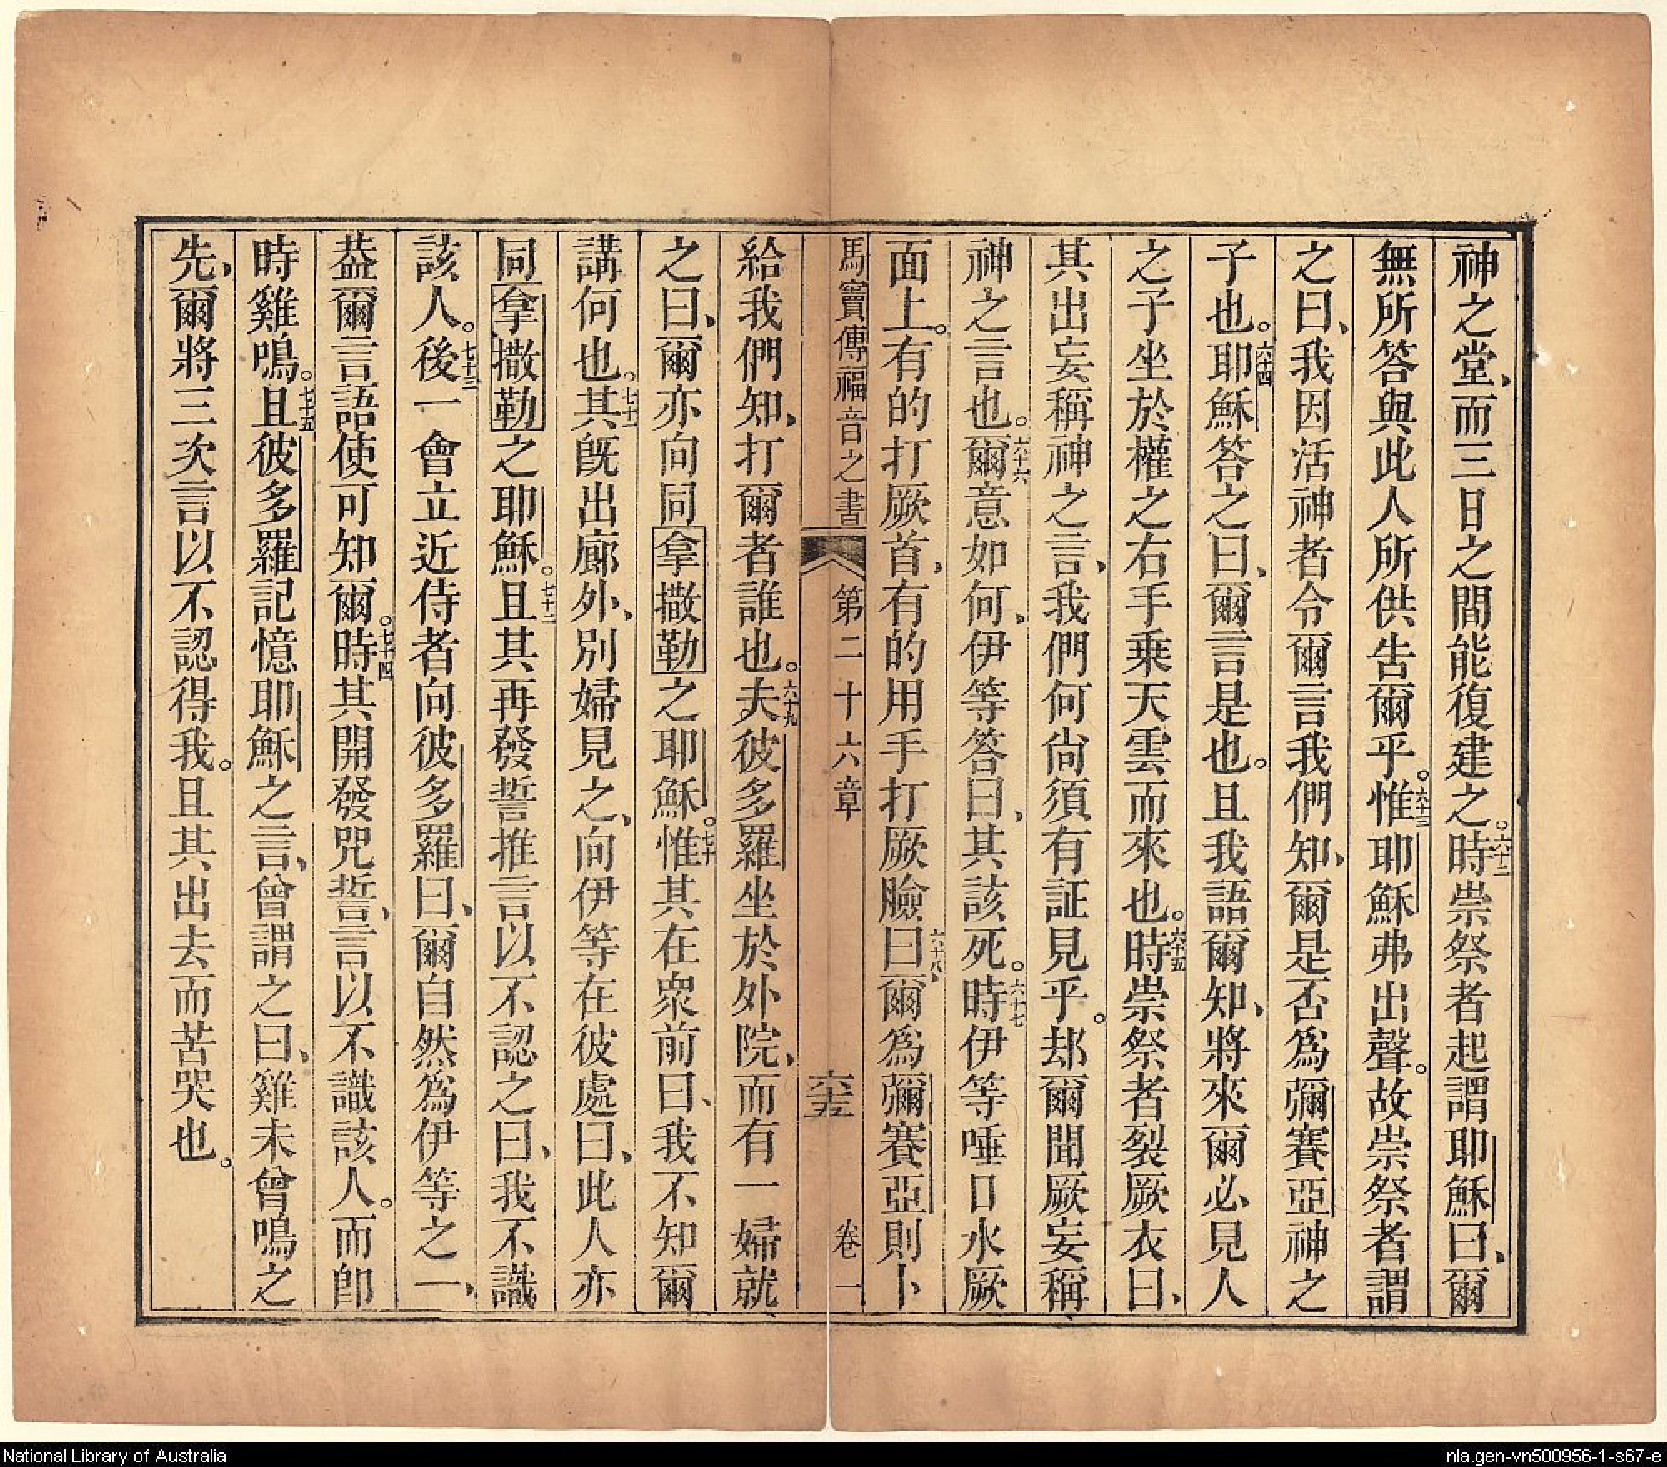 神之堂、而三日之間能復建之。六十二時崇祭者起謂耶穌曰、爾
無所答與此人所供告爾乎。六十三惟耶穌弗出聲。故崇祭者謂
之曰、我因活神者令爾言我們知、爾是否為彌賽亞神之
子也。六十四耶穌答之曰、爾言是也。且我語爾知、將來爾必見人
之子坐於權之右手乘天雲而來也。六十五時崇祭者裂厥衣曰、
其出妄稱神之言、我們何尚須有証見乎。却爾聞厥妄稱
神之言也。六十六爾意如何、伊等答曰、其該死。六十七時伊等唾口水厥
面上。有的打厥首、有的用手打厥臉六十八曰、爾為彌賽亞則卜
馬竇傳福音之書 第二十六章 六五 卷一
給我們知、打爾者誰也。六十九夫彼多羅坐於外院、而有一婦就
之曰、爾亦向同拿撒勒之耶穌。七十惟其在眾前曰、我不知爾
講何也。七十一其既出廊外、別婦見之、向伊等在彼處曰、此人亦
同拿撒勒之耶穌。七十二且其再發誓推言以不認之曰、我不識
該人。七十三後一會立近侍者向彼多羅曰、爾自然為伊等之一、
葢爾言語使可知爾。七十四時其開發咒誓、言以不識該人。而卽
時雞鳴。七十五且彼多羅記憶耶穌之言、曾謂之曰、雞未曾鳴之
先、爾將三次言以不認得我。且其出去而苦哭也。
National Library of Australia
nla.gen-vn500956-1-s67-e